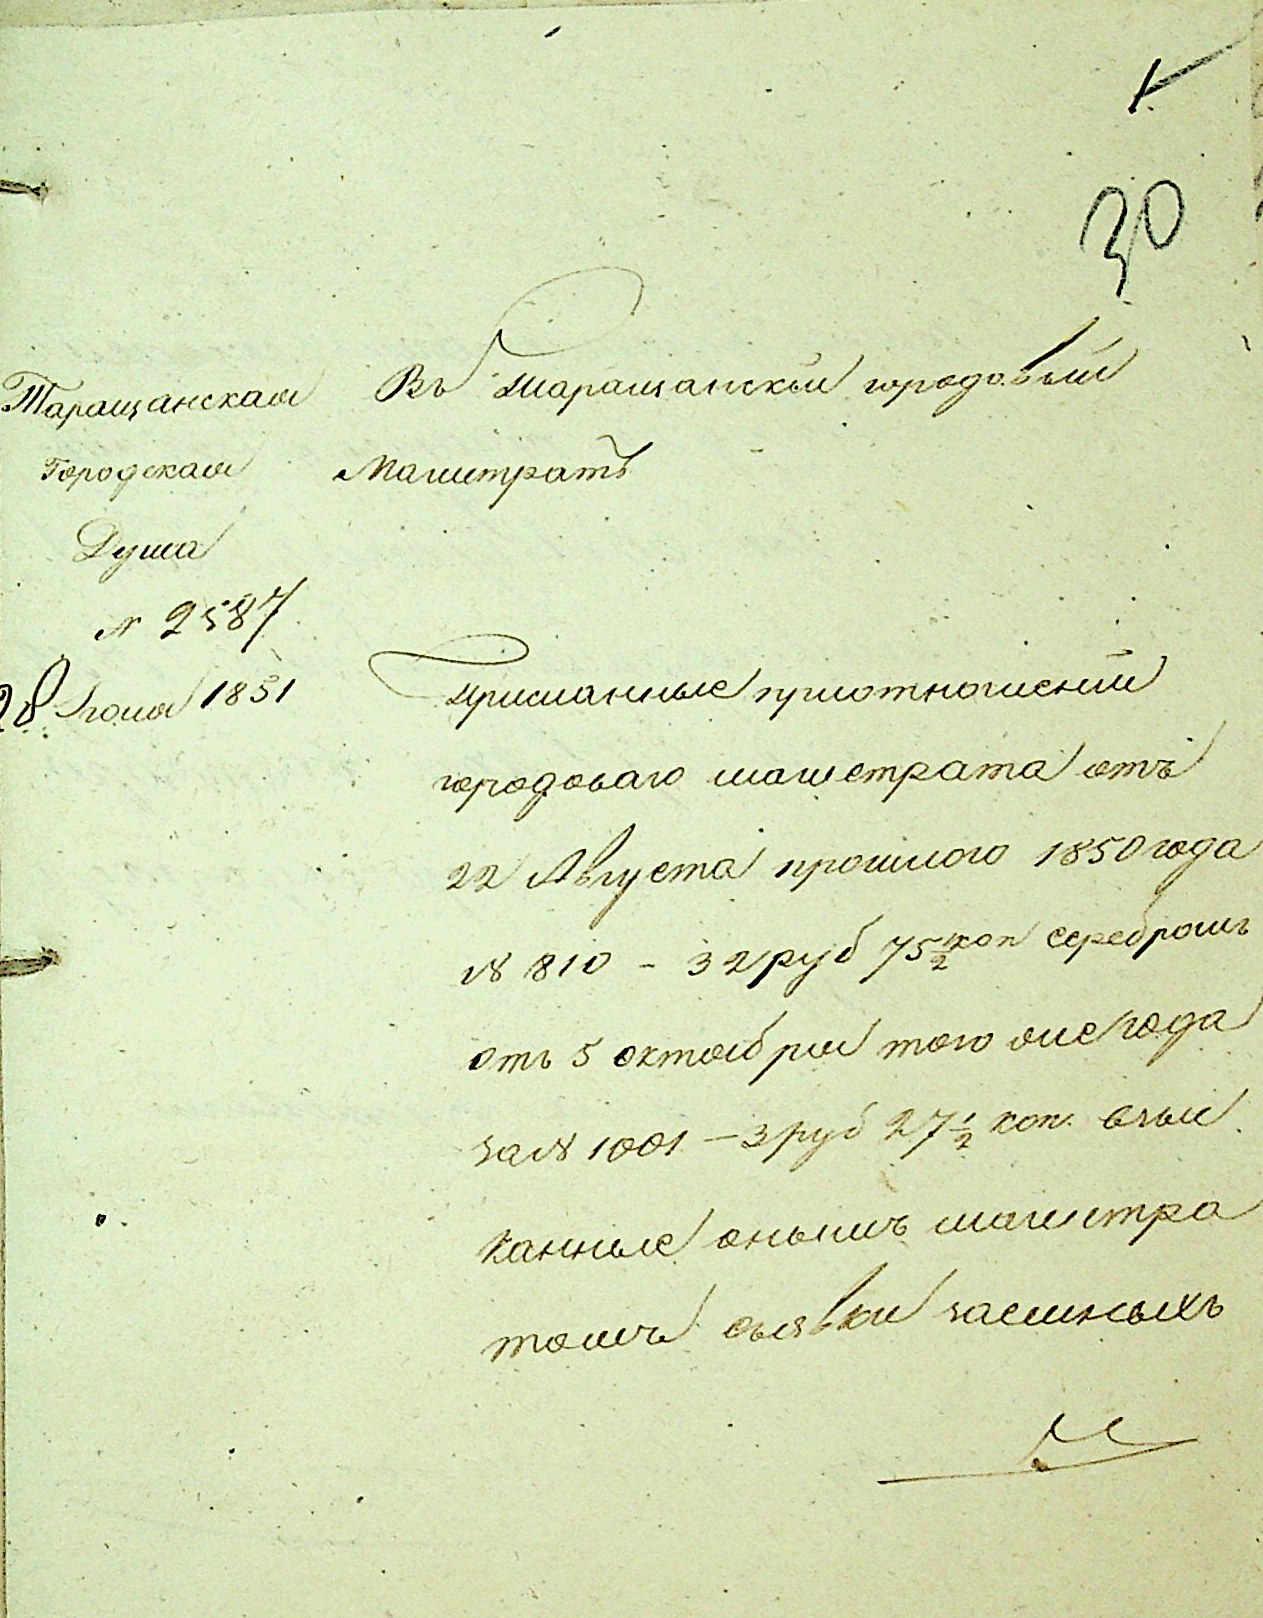 30
Таращанская
Городская
Дума
№ 2587
28 Іюня 1851
Въ Таращанскій городовый
Магистратъ
Присланные приотношеніи
городоваго магистрата отъ
22 Августа прошлого 1850 года
№ 810 – 32 руб 75 1/2 коп серебромъ
отъ 5 октября того же года
за № 1001 – 3 руб 27 1/2 коп. взыс
канные онымъ магистра
томъ